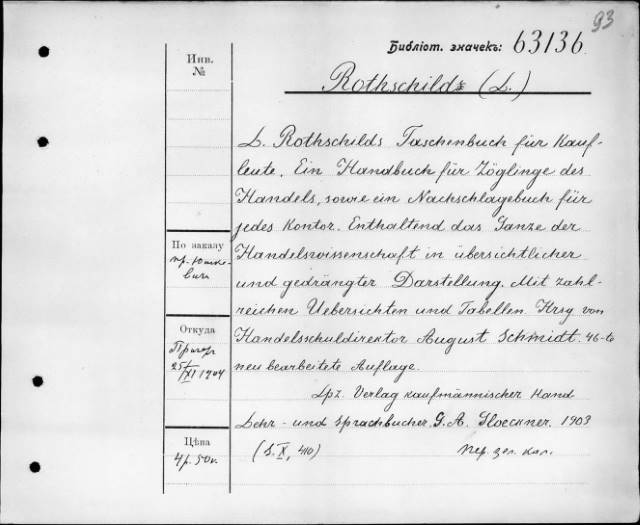 93
Библіот. значекъ: 63136
Инв.
№
Rothschilds (L.)
L. Rothschilds Taschenbuch für Kauf-
leute. Ein Handbuch für Zöglinge des
Handels, sowie ein Nachschlagebuch für
jedes Kontor. Enthaltend das Ganze der
Handelswissenschaft in übersichtlicher
und gedrängter Darstellung. Mit zahl-
reichen Uebersichten und Tabellen. Hrsg von
Handelsschuldirektor August Schmidt. 46-te
neu bearbeitete Auflage.
Lpz. Verlag kaufmännischer Hand
Lehr- und Sprachbucher. G. A. Gloeckner. 1903
(S. X, 410) пер. зел. кол.
По заказу
пр. Юшке-
вич
Откуда
25/XI 1904
Цѣна
4р. 50к.